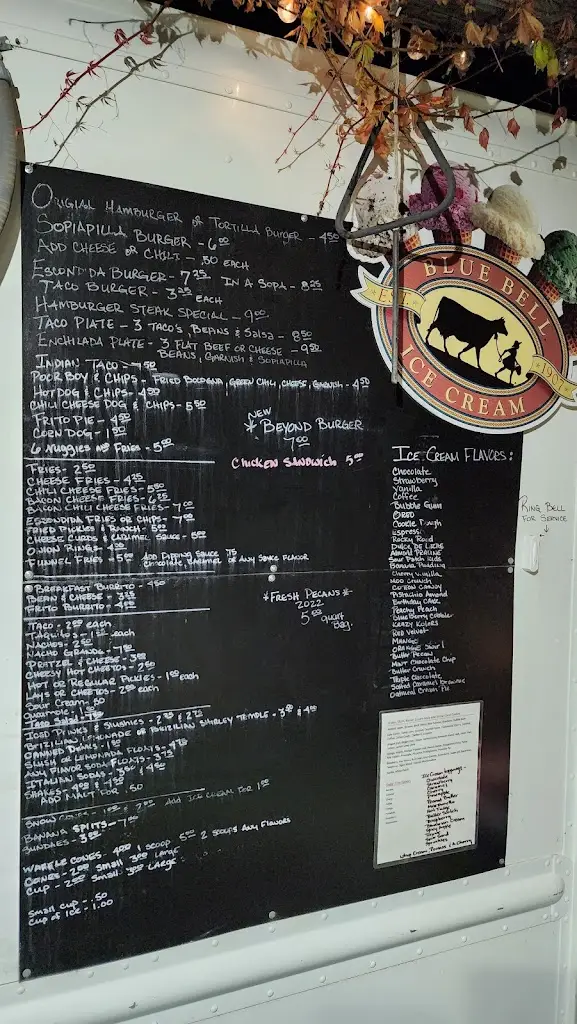 Original Hamburger or Tortilla Burger - 4.50
Sopiapilla Burger - 6.00
Add Cheese or Chili - .50 each
Escondida Burger - 7.25 In a Sopa - 8.25
Taco Burger - 3.25 each
Hamburger Steak Special - 9.00
Taco Plate - 3 Taco's, Beans & Salsa - 8.50
Enchilada Plate - 3 Flat Beef or Cheese - 9.50
Beans, Garnish & Sopiapilla
Indian Taco - 7.50
Poor Boy & Chips - Fried Bologna, Green Chili, Cheese, Garnish - 4.50
Hot Dog & Chips - 4.50
Chili Cheese Dog & Chips - 5.50
Frito Pie - 4.50
Corn Dog - 1.50
6 Nuggies and Fries - 5.00
New
* Beyond Burger
7.00
Chicken Sandwich 5.00
Fries - 2.50
Cheese Fries - 4.25
Chili Cheese Fries - 5.50
Bacon Cheese Fries - 6.25
Bacon Chili Cheese Fries - 7.00
Escondida Fries or Chips - 7.00
Fried Pickles & Ranch - 5.00
Cheese Curds & Caramel Sauce - 5.00
Onion Rings - 4.00
Funnel Fries - 5.00 Add Dipping Sauce .75
Chocolate, Caramel or Any Sauce Flavor
Breakfast Burrito - 4.50
Bean & Cheese - 3.25
Frito Burrito - 4.00
* Fresh Pecans *
2022
5.00 quart
Bag
Taco - 2.00 each
Taquitos - 1.50 each
Nachos - 2.50
Nacho Grande - 7.00
Pretzel & Cheese - 3.00
Cheesy Hot Cheetos - 2.50
Hot or Regular Pickles - 1.00 each
Lays or Cheetos - 2.00 each
Sour Cream .50
Taco Salad - 7.50
Iced Drinks & Slushies - 2.25 & 2.75
Brizilian Lemonade or Brizilian Shirley Temple - 3.00 & 4.00
Canned Drinks - 1.00
Slush or Lemonade Floats - 4.75
Any Flavor Soda Floats - 3.75
Italian Sodas - 3.00 & 4.00
Shakes - 4.00 & 4.50
Add Malt for .50
Snow Cones - Add Ice Cream for 1.00
Banana Splits - 7.00
Sundaes - 3.00
Waffle Cones - 4.00 1 scoop 5.00 2 scoops Any Flavors
Cones - 2.00 Small 3.00 Large
Cup - 2.00 Small 3.00 Large
Small Cup - .50
Cup of Ice - 1.00
BLUE BELL
EST. 1907
ICE CREAM
Ice Cream Flavors:
Chocolate
Strawberry
Vanilla
Coffee
Bubble Gum
OREO
Cookie Dough
Espresso
Rocky Road
Dulce De Leche
Almond Praline
Sour Patch Kids
Banana Pudding
Cherry Vanilla
Moo Crunch
Cotton Candy
Pistachio Almond
Birthday Cake
Peachy Peach
Blue Berry Cobbler
Krazy Kolors
Red Velvet
Mango
Orange Swirl
Butter Pecan
Mint Chocolate Chip
Butter Crunch
Triple Chocolate
Salted Caramel Brownie
Oatmeal Cream Pie
Ring Bell
For Service
Ice Cream Toppings -
Chocolate
Strawberry
Caramel
Pineapple
Peanut Butter
Marshmallow
Hot Fudge
Butter Scotch
Sprinkles
Whip Cream, Peanuts & A Cherry